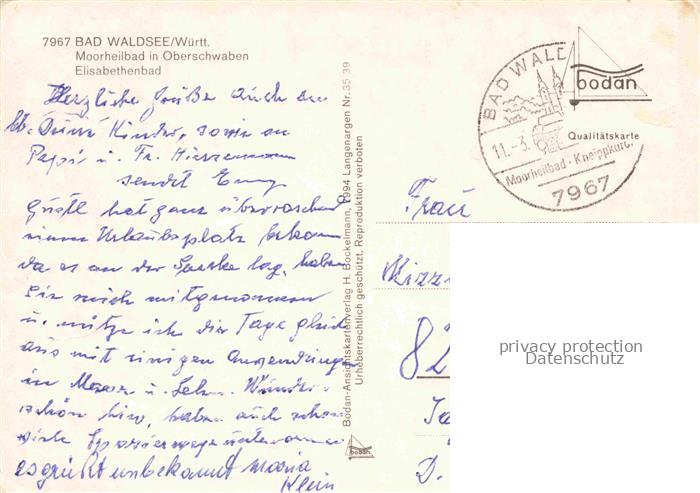 7967 BAD WALDSEE/Württ.
Moorheilbad in Oberschwaben
Elisabethenbad
Herzliche Grüße auch an
lb. Kinder, sowie an
Papa u. Fr.
sendet
Gustl hat ganz überraschend
einen Urlaubsplatz bekom
da es an der Strecke lag, haben
Sie mich mitgenommen
u. nütze ich die Tage gleich
aus mit einigen Anwendungen
in Moor u. Wunder-
schön hier, haben auch schon
viele Spazierwege unternomme
es grüßt unbekannt Maria
Klein
Bodan-Ansichtskartenverlag H. Bockelmann, 7994 Langenargen Nr. 35 39
Urheberrechtlich geschützt, Reproduktion verboten
bodan
BAD WALD
11.-3.
Moorheilbad · Kneippkuror
7967
bodan
Qualitätskarte
Frau
82
D.
privacy protection
Datenschutz